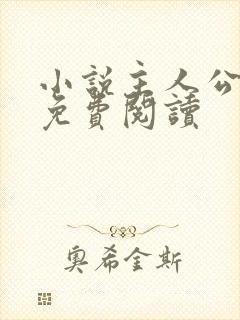 小说主人公
免費閱讀
奥希金斯